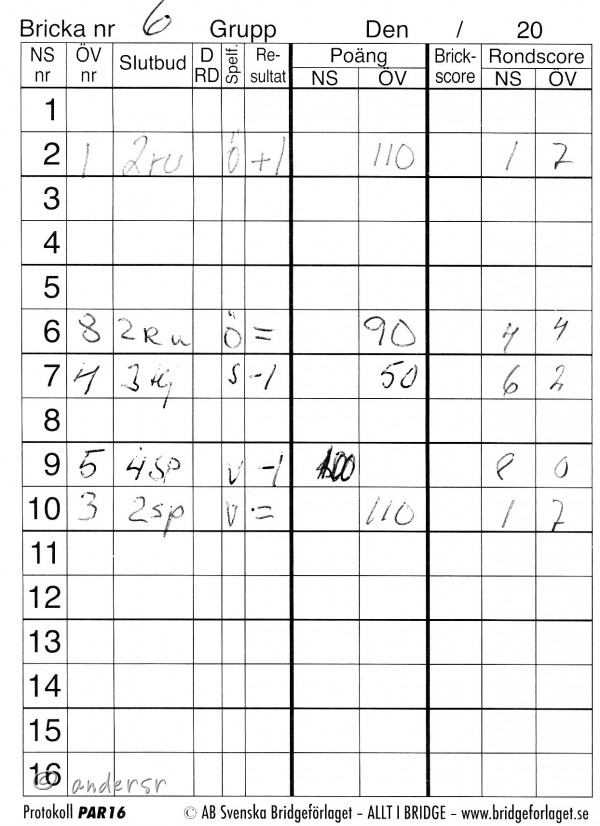 Bricka nr 6 Grupp Den / 20
NS nr ÖV nr Slutbud D RD Spelf. Re-sultat Poäng NS ÖV Brick-score Rondscore NS ÖV
1
2 1 2ru Ö +1 110 1 7
3
4
5
6 8 2Ru Ö = 90 4 4
7 4 3Hj S -1 50 6 2
8
9 5 4SP V -1 100 8 0
10 3 2sp V = 110 1 7
11
12
13
14
15
16
© andersr
Protokoll PAR16 © AB Svenska Bridgeförlaget – ALLT I BRIDGE – www.bridgeforlaget.se